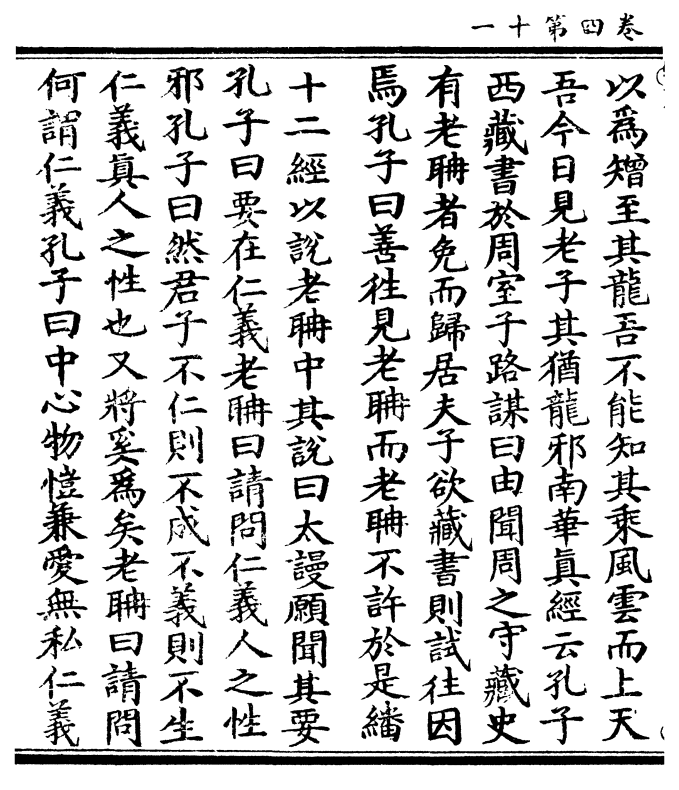 卷四第十一
以爲矰至其龍吾不能知其乘風雲而上天
吾今日見老子其猶龍邪南華眞經云孔子
西藏書於周室子路謀曰由聞周之守藏史
有老聃者免而歸居夫子欲藏書則試往因
焉孔子曰善往見老聃而老聃不許於是繙
十二經以說老聃中其說曰太謾願聞其要
孔子曰要在仁義老聃曰請問仁義人之性
邪孔子曰然君子不仁則不成不義則不生
仁義眞人之性也又將奚爲矣老聃曰請問
何謂仁義孔子曰中心物愷兼愛無私仁義